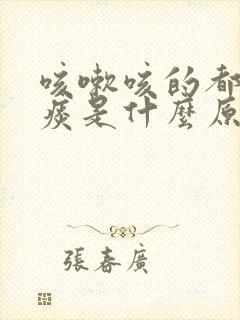 咳嗽咳的都
痰是什麼原
張春廣